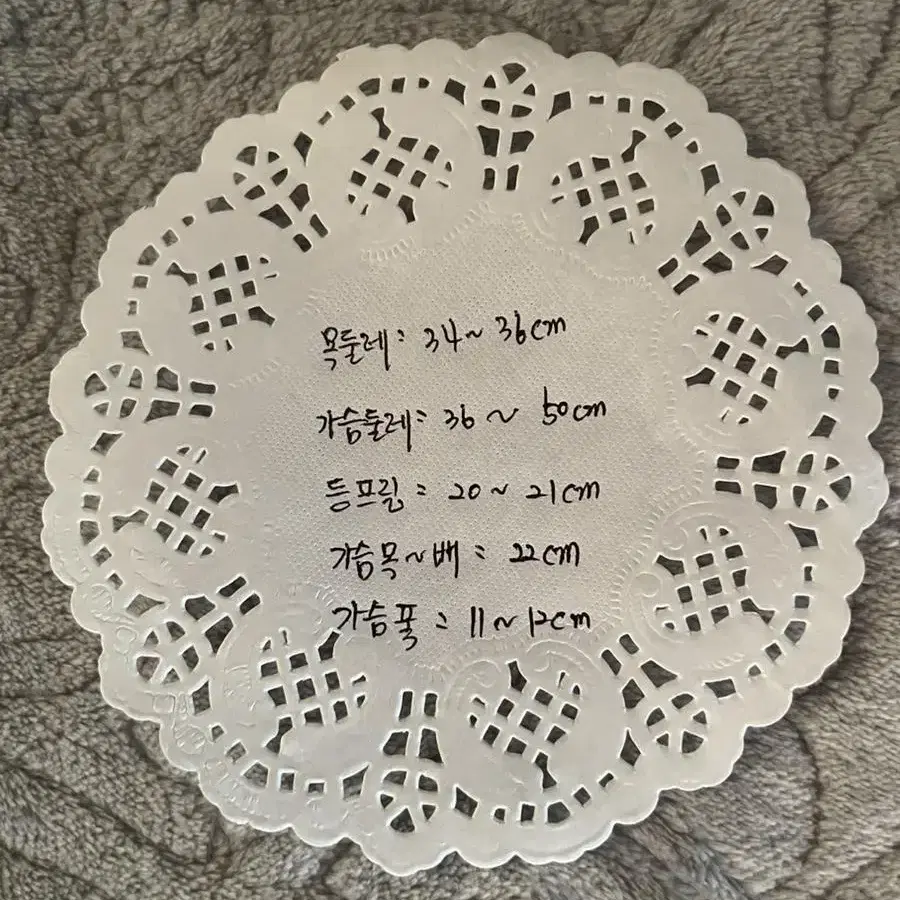 목둘레: 34~36cm
가슴둘레: 36~ 50cm
등프릴: 20~21cm
가슴목~배: 22cm
가슴폭: 11~12cm